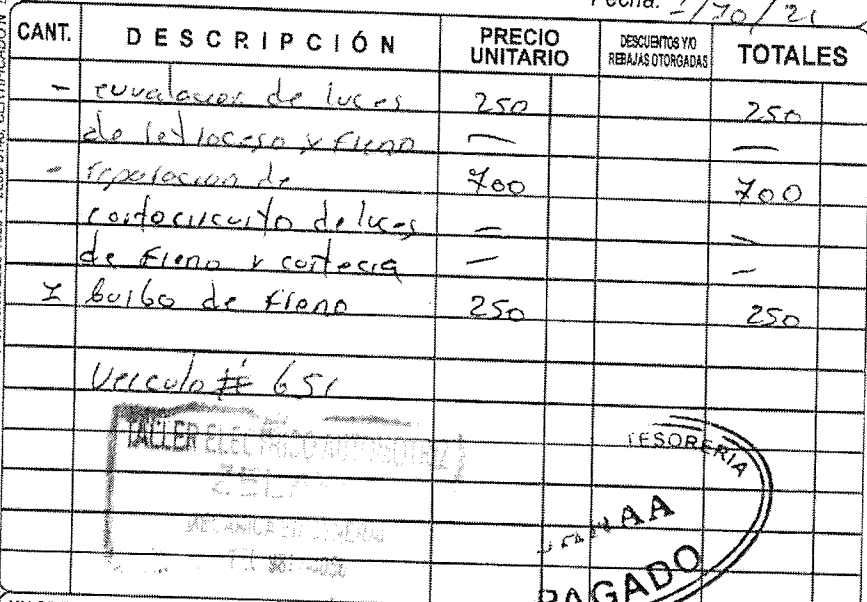 Fecha: 1/10/21
CANT. DESCRIPCIÓN PRECIO UNITARIO DESCUENTOS Y/O REBAJAS OTORGADAS TOTALES
- de luces 250 250
de retroceso y freno — —
- reparacion de 700 700
cortocircuito de luces — —
de freno y cortecia — —
1 bulbo de freno 250 250
Veiculo # 651
TALLER ELECTRICO AUTOMOTRIZ
MECANICA EN GENERAL
TESORERIA
PAGADO